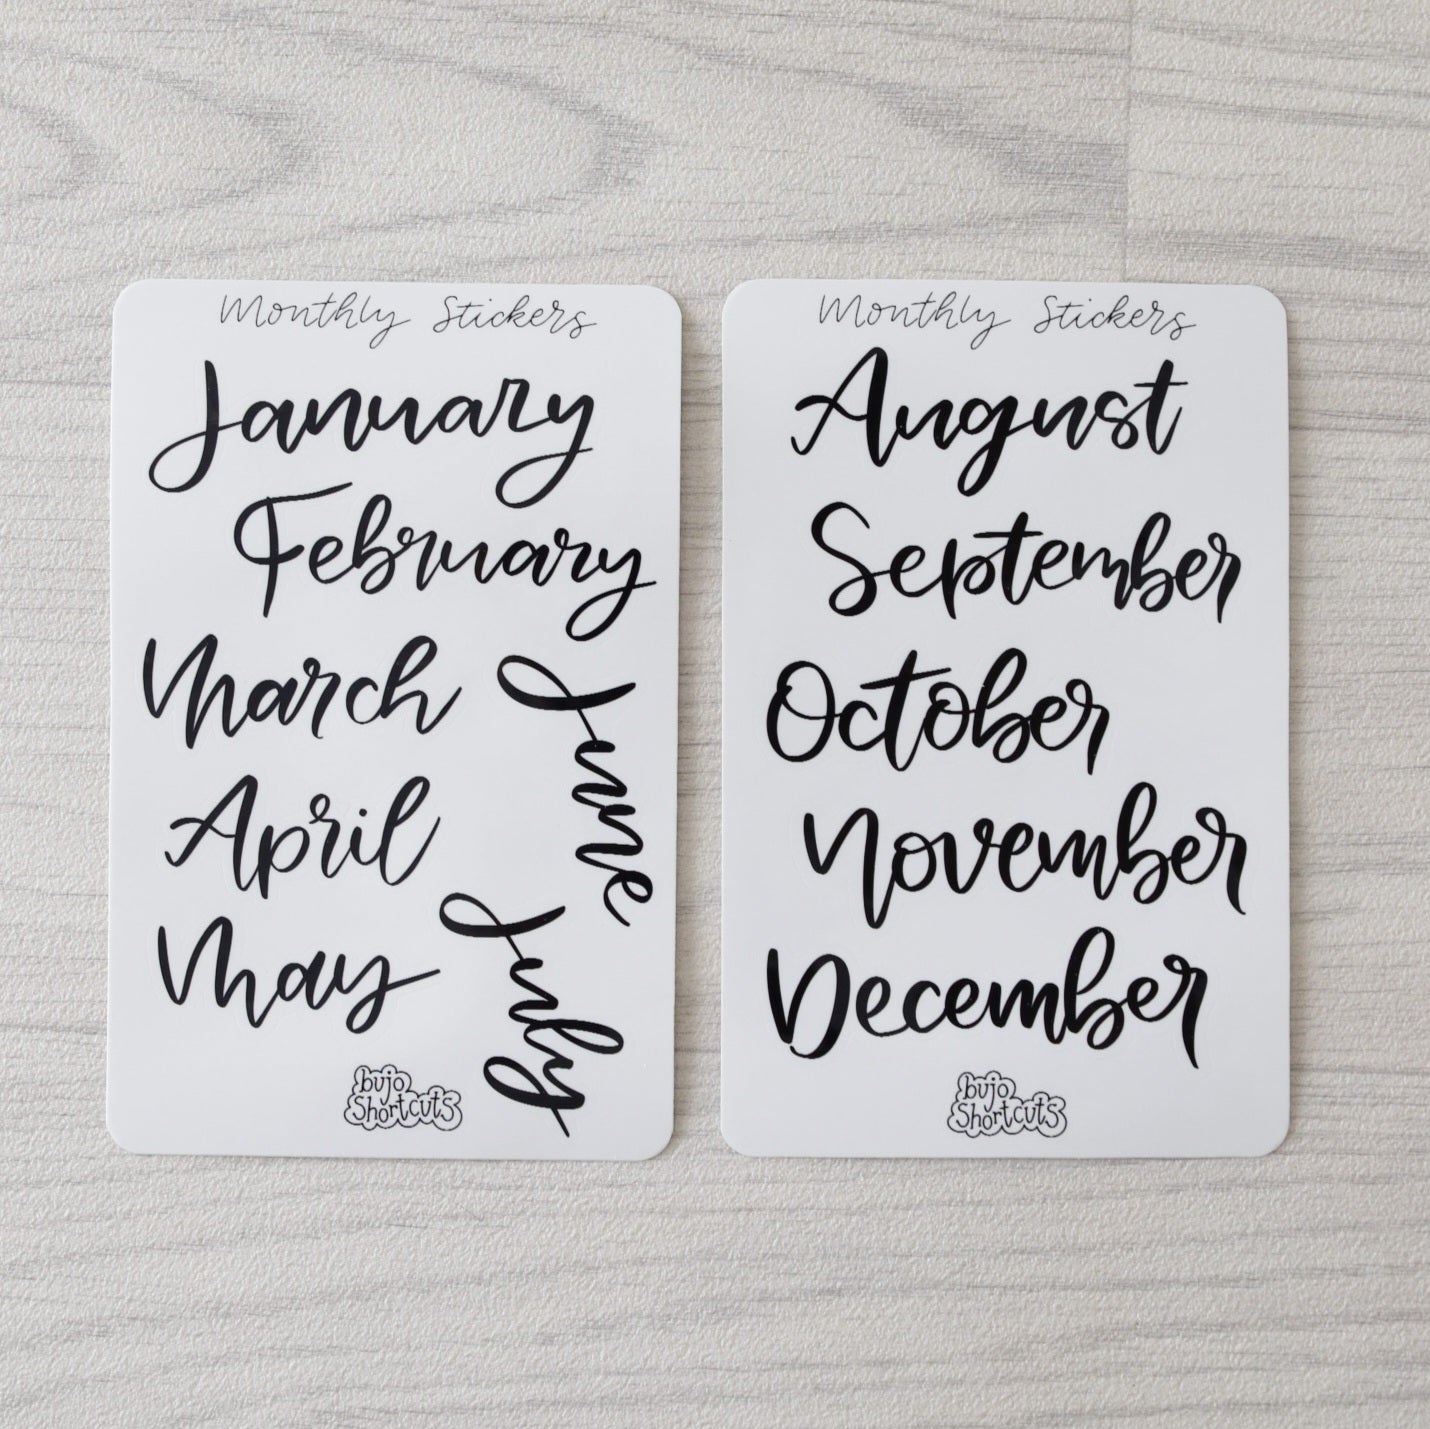 Monthly Stickers
January
February
March
April
May
June
July
bujo
Shortcuts
Monthly Stickers
August
September
October
November
December
bujo
Shortcuts